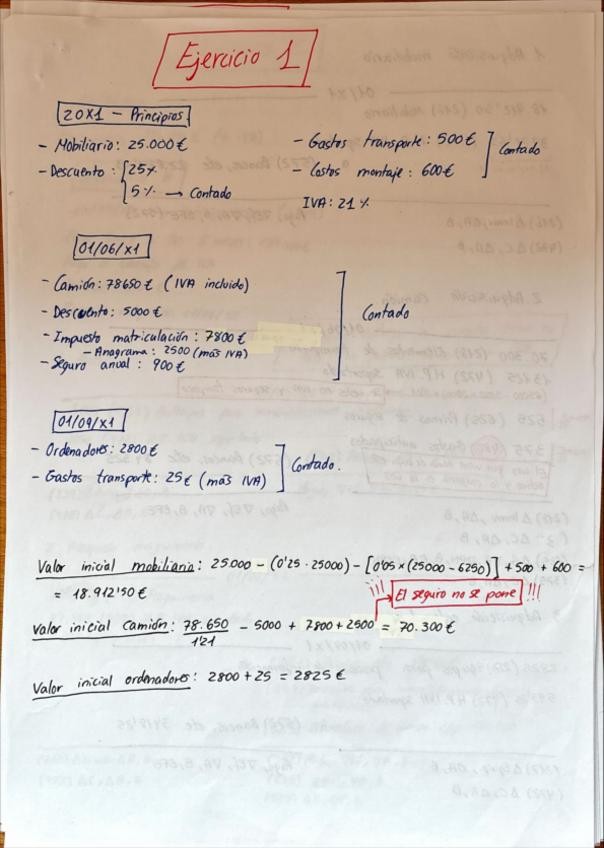 Ejercicio 1
20X1 - Principios
- Mobiliario: 25.000 €
- Descuento: 25%
5% → Contado
- Gastos transporte: 500 €
- Costos montaje: 600 €
Contado
IVA: 21 %
01/06/X1
- Camión: 78650 € (IVA incluido)
- Descuento: 5000 €
- Impuesto matriculación: 7800 €
- Anagrama: 2500 (más IVA)
- Seguro anual: 900 €
Contado
01/09/X1
- Ordenadores: 2800 €
- Gastos transporte: 25 € (más IVA)
Contado.
Valor inicial mobiliario: 25.000 - (0'25 · 25000) - [0'05 × (25000 - 6250)] + 500 + 600 =
= 18.912'50 €
!!! El seguro no se pone !!!
Valor inicial camión: 78.650 / 1'21 - 5000 + 7800 + 2500 = 70.300 €
Valor inicial ordenadores: 2800 + 25 = 2825 €